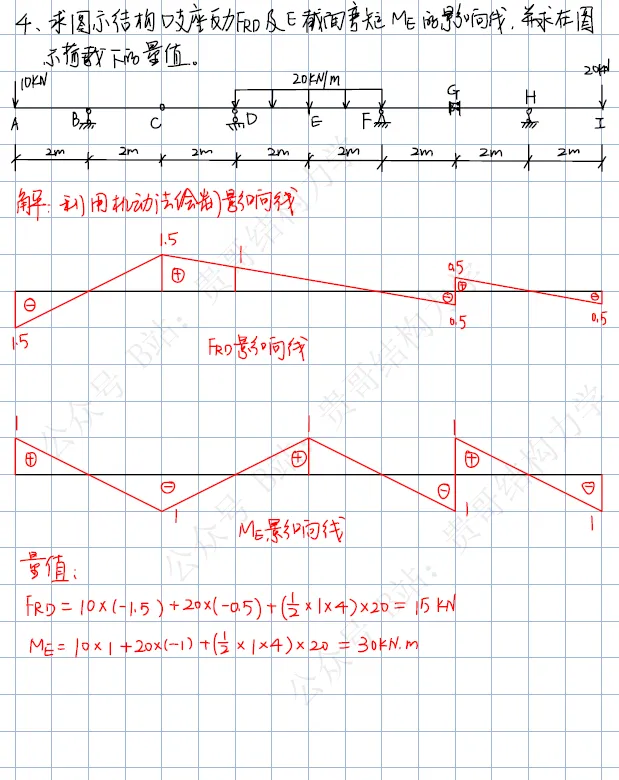 4、求图示结构D支座反力FRD及E截面弯矩ME的影响线,并求在图
示荷载下的量值。
10KN
20KN/m
20KN
A B C D E F G H I
2m 2m 2m 2m 2m 2m 2m 2m
解:利用机动法绘制影响线
1.5 1 0.5
⊖ ⊕ ⊖ ⊕ ⊖
1.5 0.5 0.5
FRD影响线
1 1 1
⊕ ⊖ ⊕ ⊖ ⊕ ⊖
1 1 1
ME影响线
量值:
FRD=10×(-1.5)+20×(-0.5)+(1/2×1×4)×20=15KN
ME=10×1+20×(-1)+(1/2×1×4)×20=30KN.m
公众号 B站:贵哥结构力学
公众号 B站:贵哥结构力学
公众号 B站:贵哥结构力学